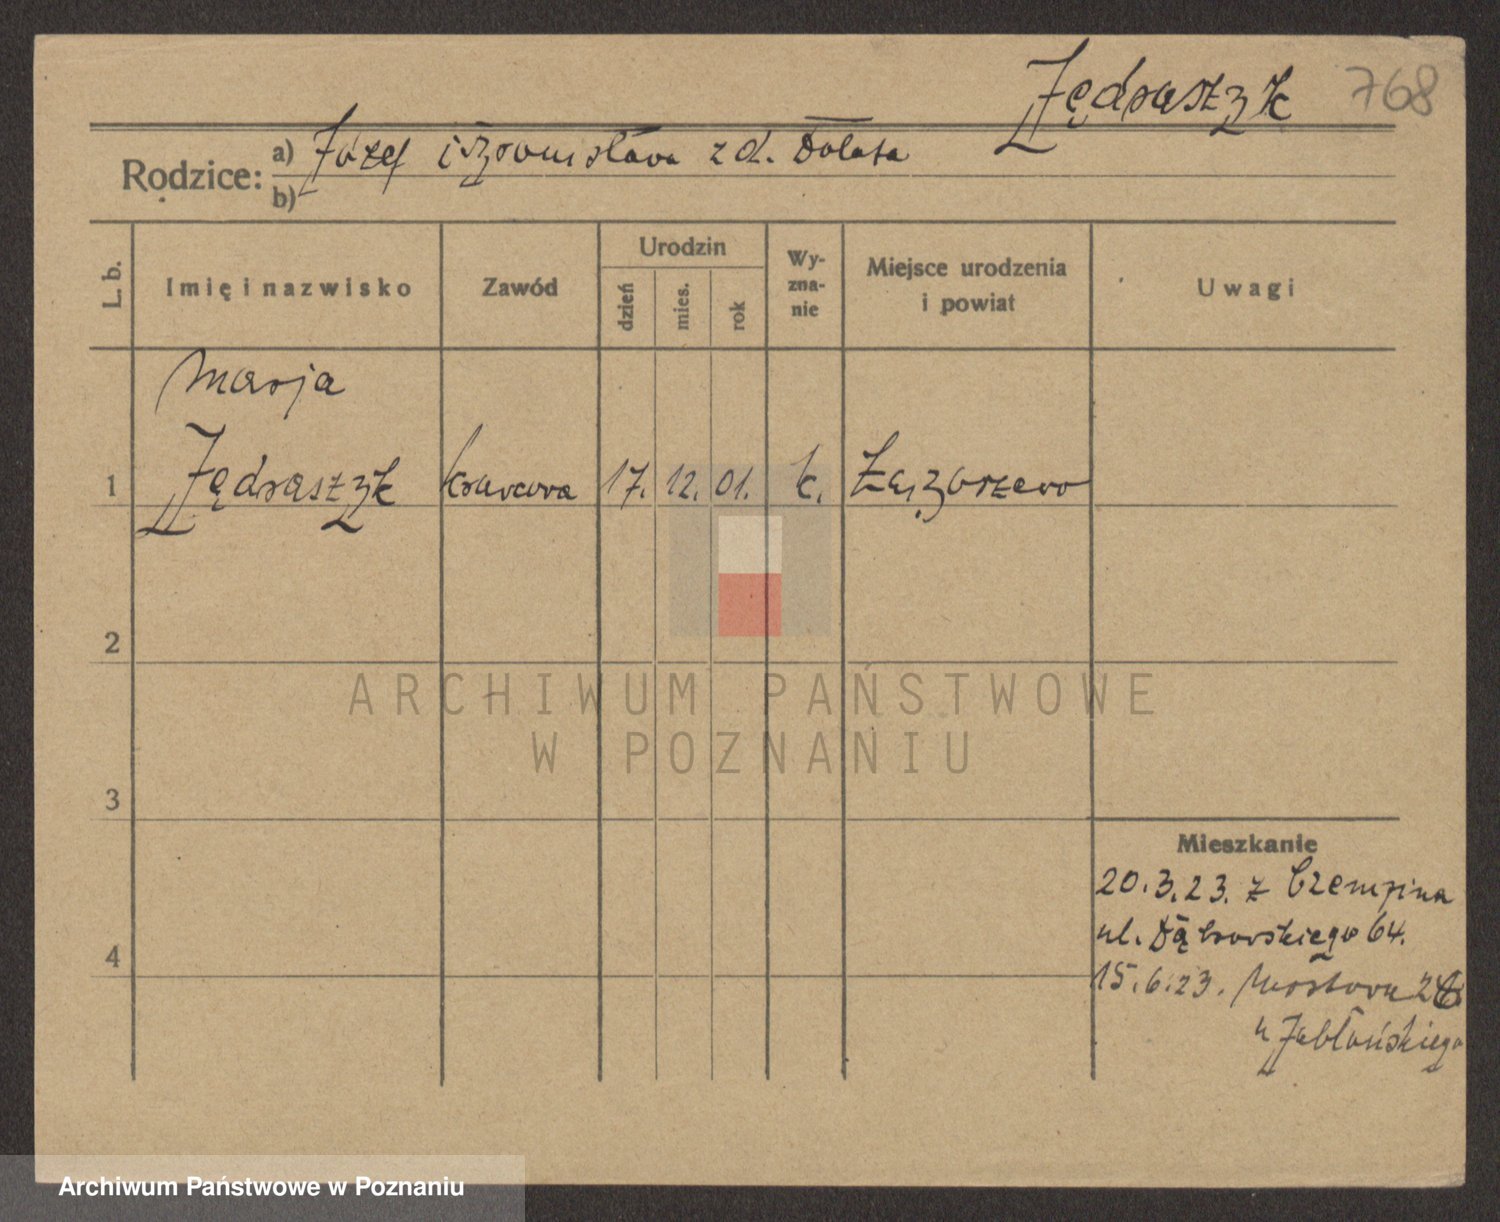 Jędraszyk 768
Rodzice: a) Józef i Bronisława z d. Dolata
b)
L. b. Imię i nazwisko Zawód Urodzin dzień mies. rok Wy-zna-nie Miejsce urodzenia i powiat Uwagi
Marja
1 Jędraszyk krawcowa 17. 12. 01. k.
2
3
4
Mieszkanie
20.3.23. z Czempina
ul. Dąbrowskiego 64.
15.6.23. Mostowa
u Jabłońskiego
ARCHIWUM PAŃSTWOWE
W POZNANIU
Archiwum Państwowe w Poznaniu